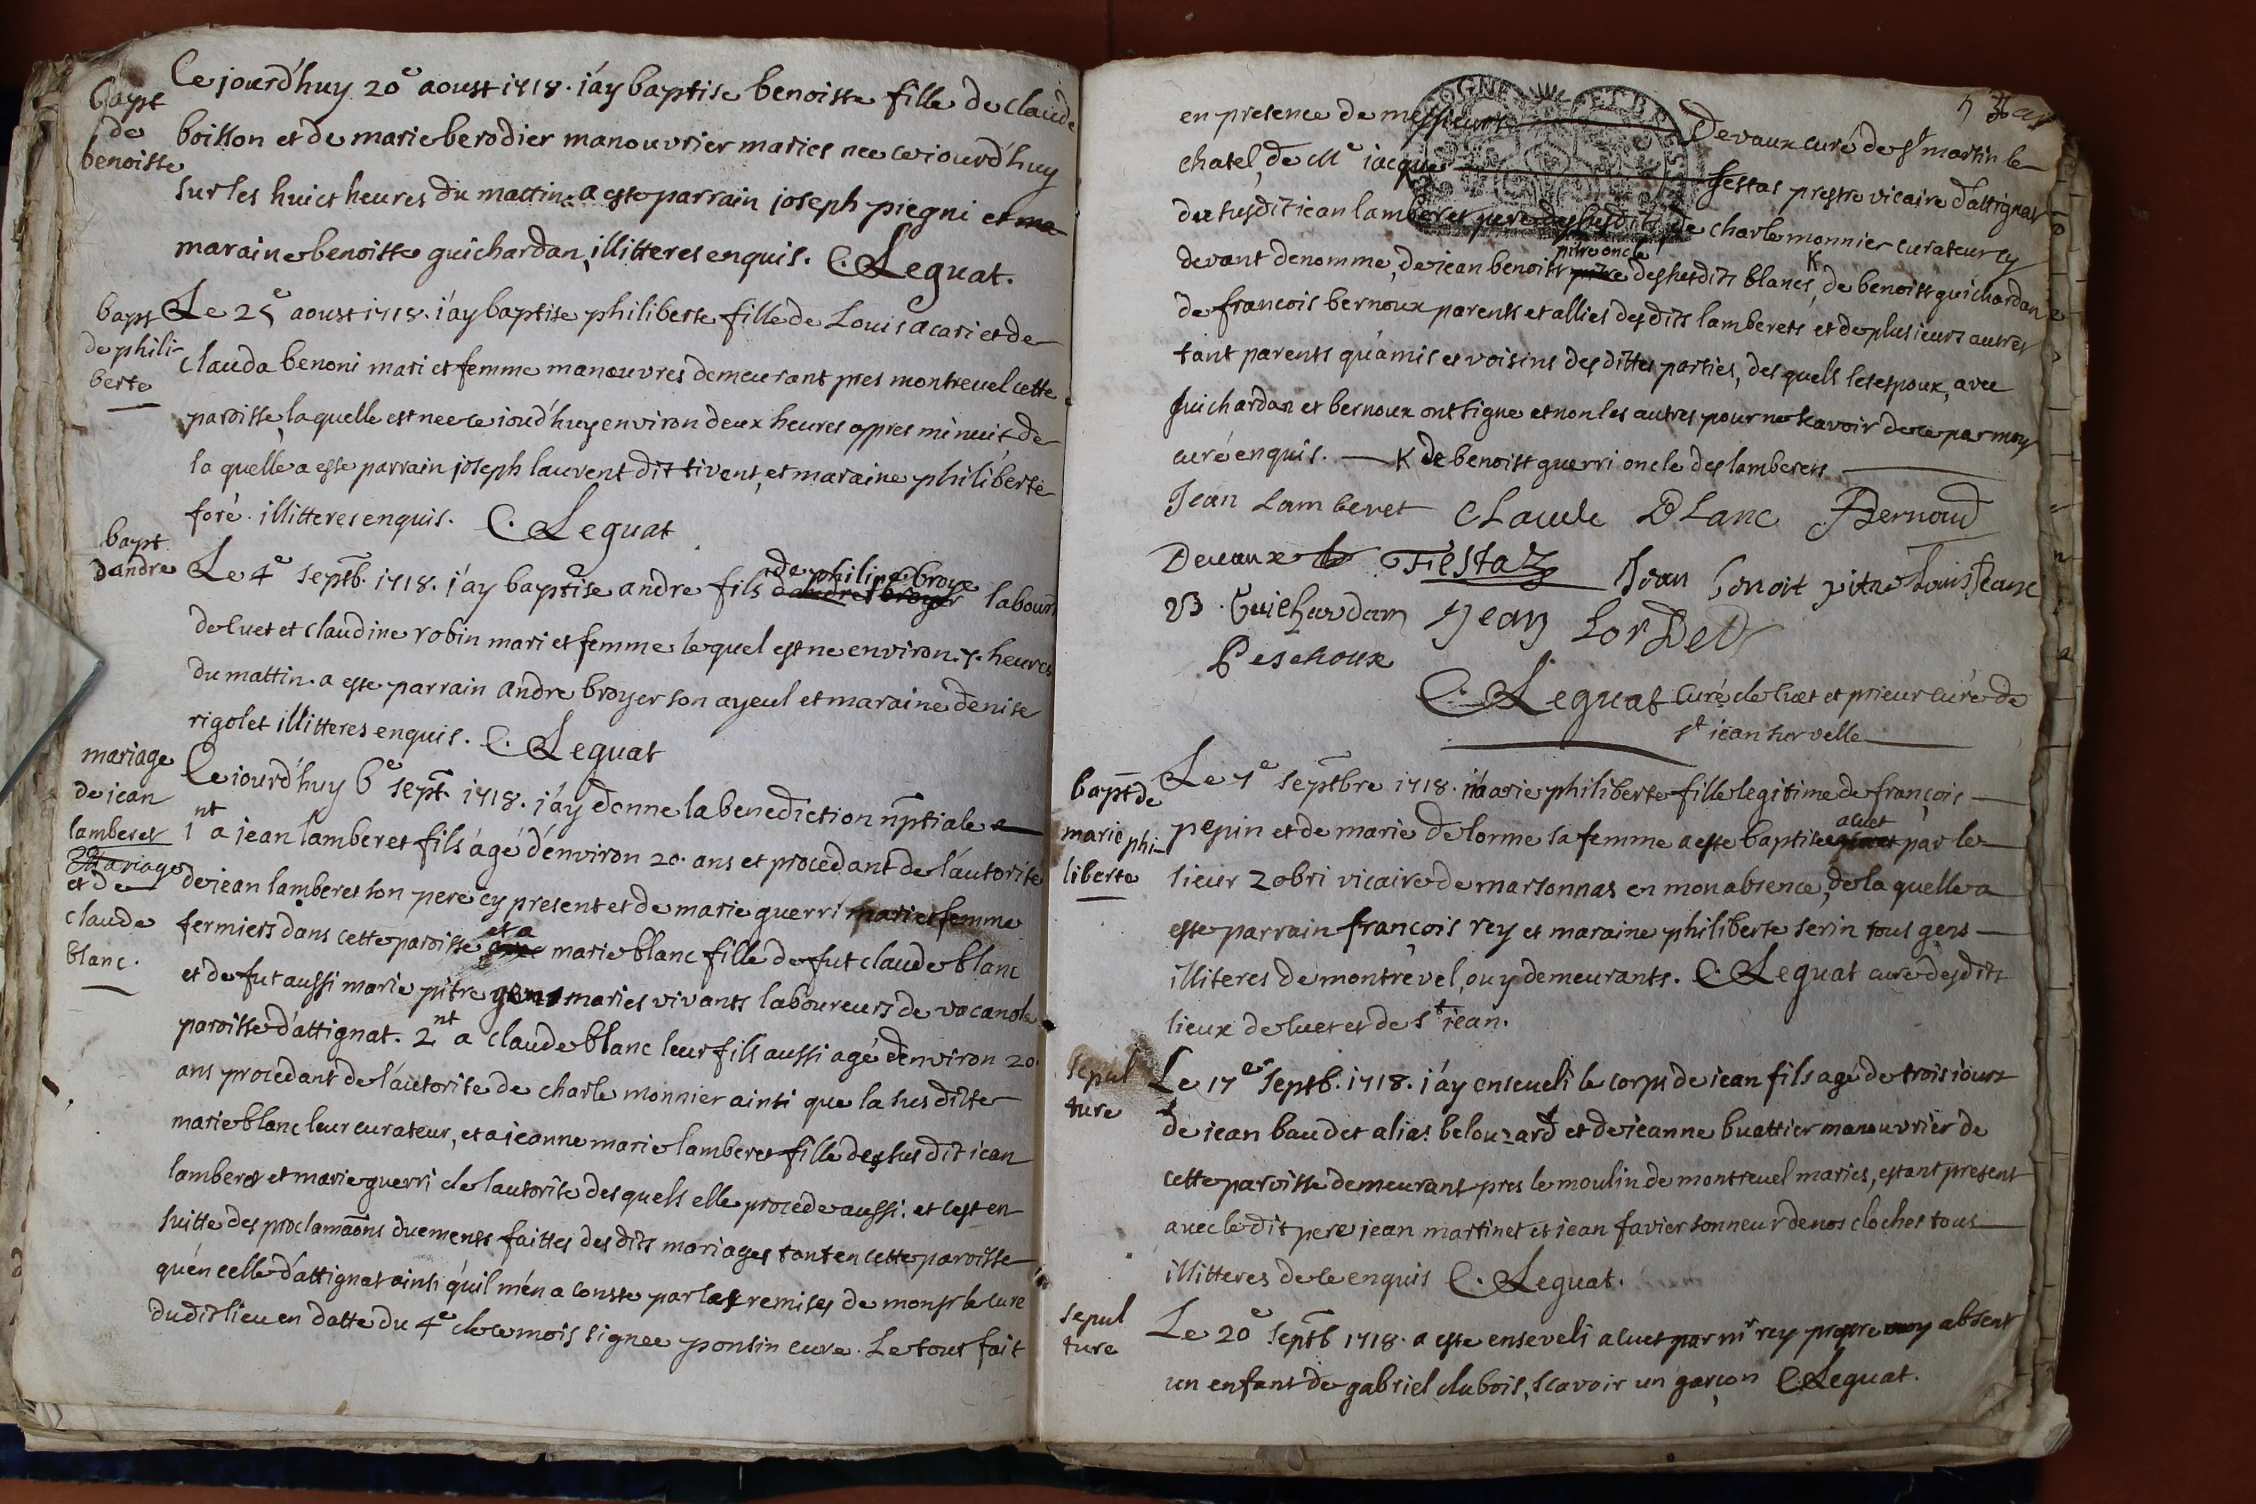 bapt
de
benoiste
Ce jourd'huy 20e aoust 1718. j'ay baptise benoiste fille de claude
boisson et de marie berodier manouvrier maries nee ce iourd'huy
sur les huict heures du mattin. a este parrain joseph piegni et ma
maraine benoiste guichardan, illitteres enquis. C. Leguat.
bapt
de phili-
berte
Le 25e aoust 1718. j'ay baptise philiberte fille de Louis acari et de
clauda benoni mari et femme manouvres demeurant pres montrevel cette
paroisse, laquelle est nee ce iourd'huy environ deux heures appres minuit de
la quelle a este parrain joseph laurent dit tivent, et maraine philiberte
foré. illitteres enquis. C. Leguat
bapt
d'andre
de philipe broye
Le 4e septb. 1718. j'ay baptise andre fils d'andre broyer labour
de luet et claudine robin mari et femme lequel est ne environ 7. heures
du mattin. a este parrain andre broyer son ayeul et maraine denise
rigolet illitteres enquis. C. Leguat
mariage
de jean
lamberet
Mariage
et de
claude
blanc.
Ce iourd'huy 6e sept. 1718. j'ay donne la benediction nptiale
1nt a jean lamberet fils âgé d'environ 20. ans et procedant de l'autorité
de jean lamberet son pere cy present et de marie guerri mari et femme
et a
fermiers dans cette paroisse avec marie blanc fille de fut claude blanc
et de fut aussi marie pitre gens maries vivants laboureurs de vacanole
paroisse d'attignat. 2nt a claude blanc leur fils aussi agé d'environ 20.
ans procedant de l'autorite de charle monnier ainsi que la susditte
marie blanc leur curateur, et a jeanne marie lamberet fille des susdit jean
lamberet et marie guerri de lautorite desquels elle procede aussi: et cest en
suitte des proclamaons duements faittes des dits mariages tant en cette paroisse
qu'en celle d'attignat ainsi qu'il m'en a conste par les remises de monsr le curé
dudit lieu en datte du 4e de ce mois signee ponsin cure. Le tout fait
en presence de messieurs Devaux curé de st martin le
chatel, de Me jacques festas prestre vicaire d'attignat
du susdit jean lamberet pere des susdits de charle monnier curateur cy
pitre oncle
devant denomme, de jean benoist pitre des susdits blancs, K de benoist guichardan
de francois bernoux parents et allies des dits lamberets et de plusieurs autres
tant parents qu'amis et voisins des dittes parties, des quels les espoux, avec
guichardan et bernoux ont signe et non les autres pour ne scavoir de ce par moy
curé enquis. K de benoist guerri oncle des lamberets
Jean Lamberet CLaude BLanc Bernoud
Devaux FestaZ Jean benoit pitre Louis Jeanc
B. Guichardam Jean LorDet
Peseноux
C. Leguat Curé de luet et prieur curé de
st jean sur velle
bapt de
marie phi-
liberte
Le 7e septbre 1718. marie philiberte fille legitime de françois
aluet
pepin et de marie delorme sa femme a este baptisee par le
sieur zobri vicaire de marsonnas en mon absence, de la quelle a
este parrain françois rey et maraine philiberte serin tous gens
illiteres de montrevel, ou y demeurants. C. Leguat curé desdits
lieux de luet et de st jean.
sepul
ture
Le 17e septb. 1718. j'ay enseueli le corps de jean fils agé de trois iours
de jean baudet alias belouzard et de jeanne buattier manouvrier de
cette paroisse demeurant pres le moulin de montreuel maries, estant present
avec le dit pere jean martinet et jean favier sonneur de nos cloches tous
illitteres de ce enquis C. Leguat.
sepul
ture
Le 20e septb 1718. a este enseveli a luet par mr rey prestre moy absent
un enfant de gabriel dubois, scavoir un garçon C. Leguat.